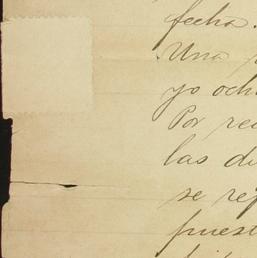 fecha.
Una
yo och
Por rec
las di
se rep
puest